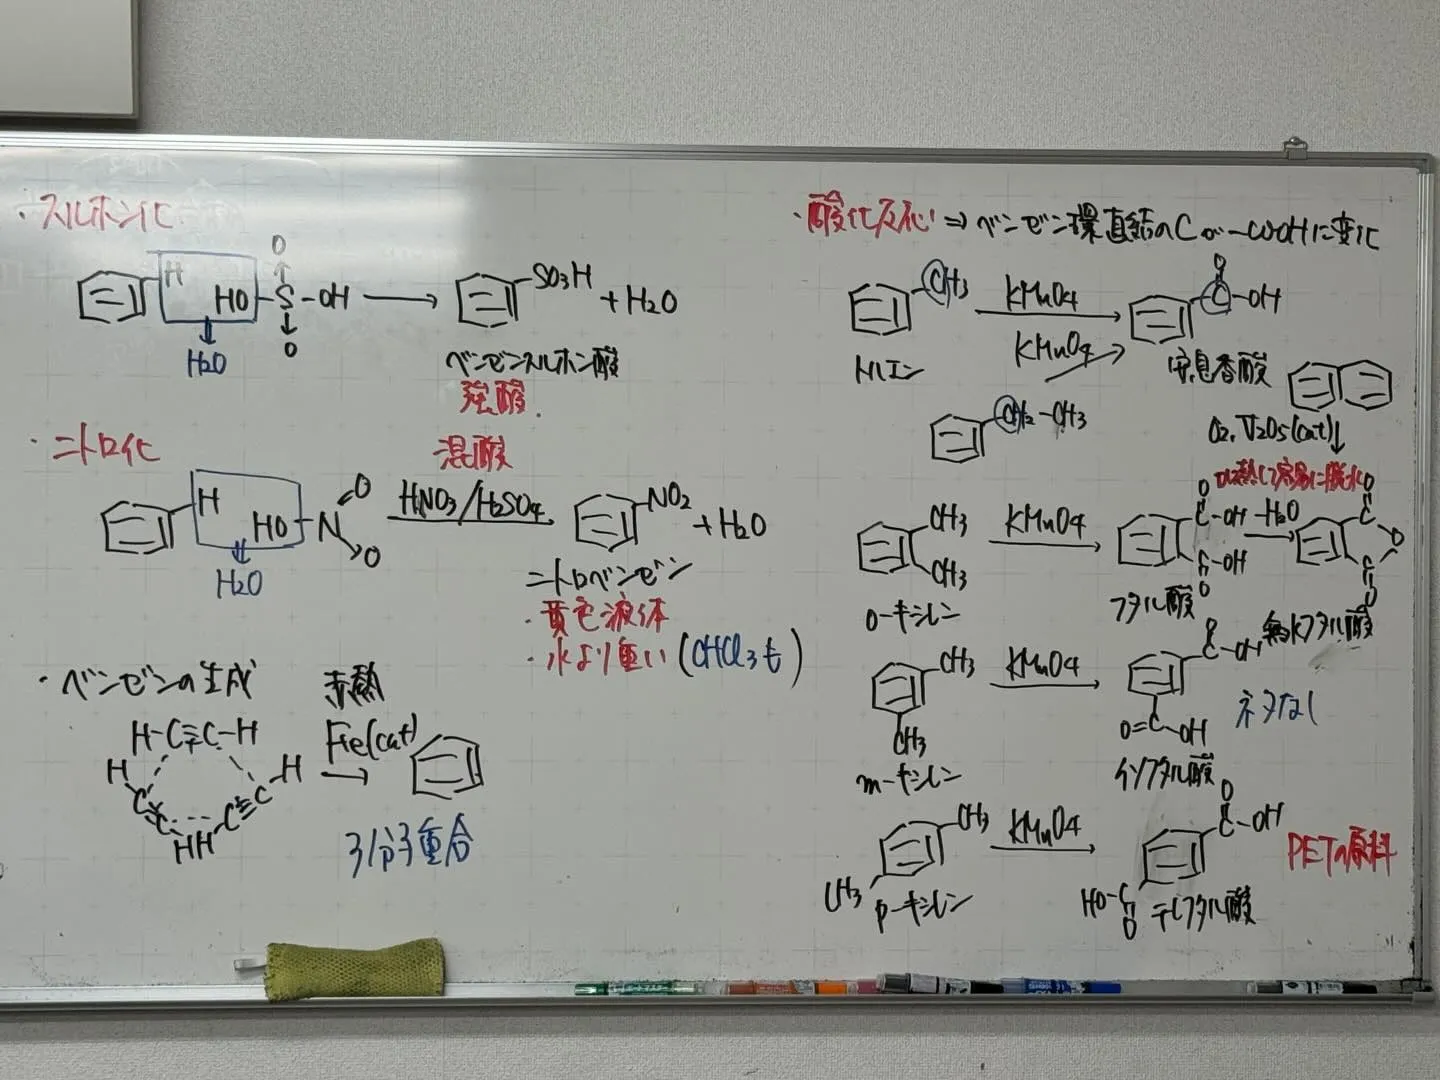 ・スルホン化
H HO-S-OH → SO3H +H2O
O
O
H2O
ベンゼンスルホン酸
強酸
・ニトロ化
混酸
H HO-N O O
HNO3/H2SO4
NO2 +H2O
H2O
ニトロベンゼン
・黄色液体
・水より重い (CHCl3も)
・ベンゼンの生成
赤熱
Fe(cat)
H-C≡C-H
H C≡C H
H C≡C H
3分子重合
・酸化反応 ⇒ ベンゼン環直結のCが-COOHに変化
CH3 KMnO4 O C-OH
トルエン KMnO4 安息香酸
CH2-CH3
O2, V2O5(cat)↓
加熱して容易に脱水
CH3 CH3 KMnO4 O C-OH C-OH O -H2O O C O C O
o-キシレン フタル酸 無水フタル酸
CH3 CH3 KMnO4 O C-OH O=C-OH
ネタなし
m-キシレン イソフタル酸
CH3 CH3 KMnO4 O C-OH HO-C O
PETの原料
p-キシレン テレフタル酸